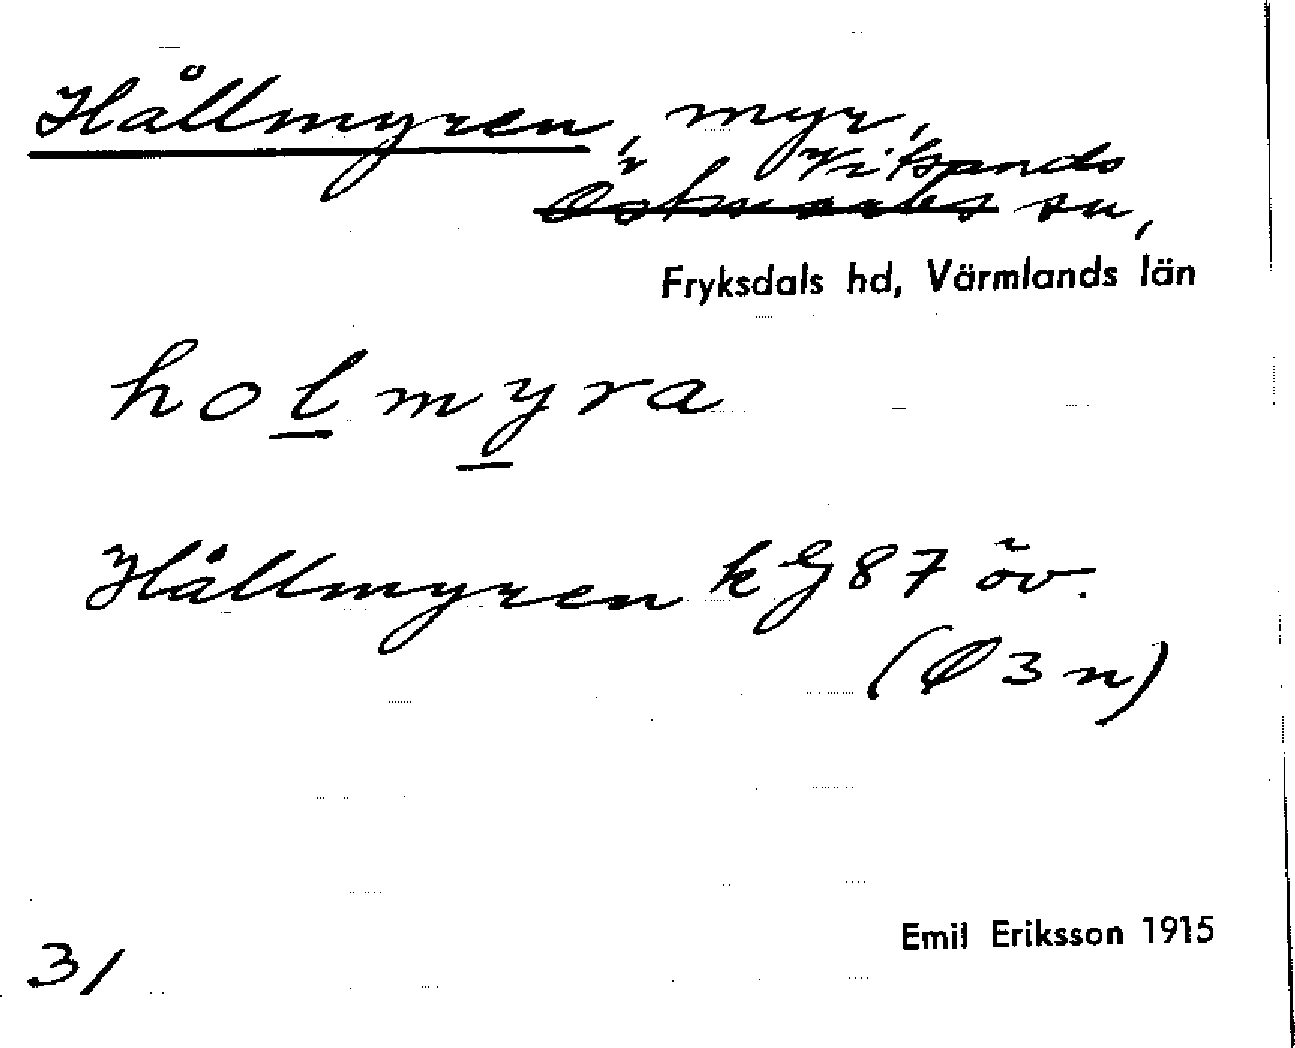 Hållmyren, myr,
Vitsands
Östmarks sn,
Fryksdals hd, Värmlands län
holmyra
Hållmyren kG87 öv.
(Ø3n)
Emil Eriksson 1915
31